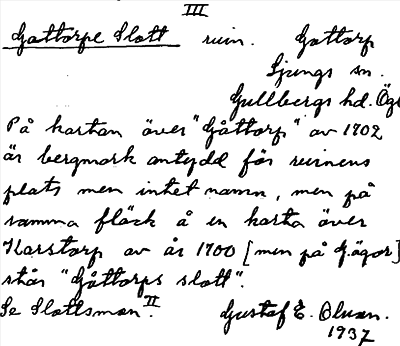 III
Gottorpe Slott ruin. Gottorp
Ljungs sn.
Gullbergs hd. Ög
På kartan över "Gåttorp" av 1702
är bergmark antydd för ruinens
plats men intet namn, men på
samma fläck å en karta över
Karstorp av år 1700 [men på G. ägor]
står "Gåttorps slott".
Se Slottsmon II.
Gustaf E. Olsson.
1937